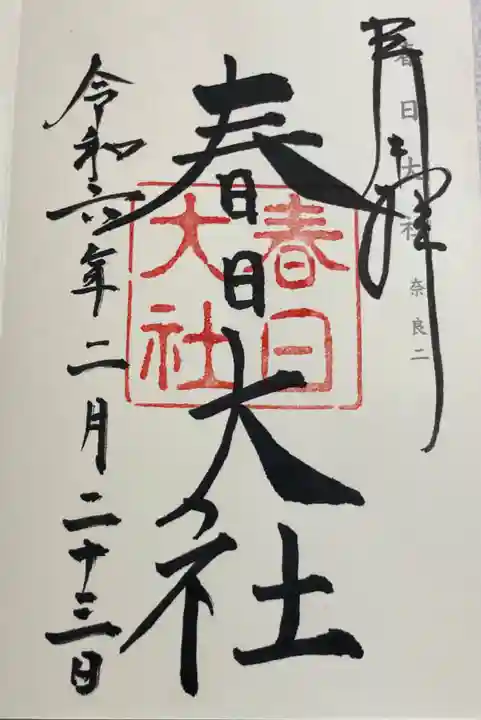 奉拝
春日大社 奈良二
春日大社
春日大社
令和六年二月二十三日